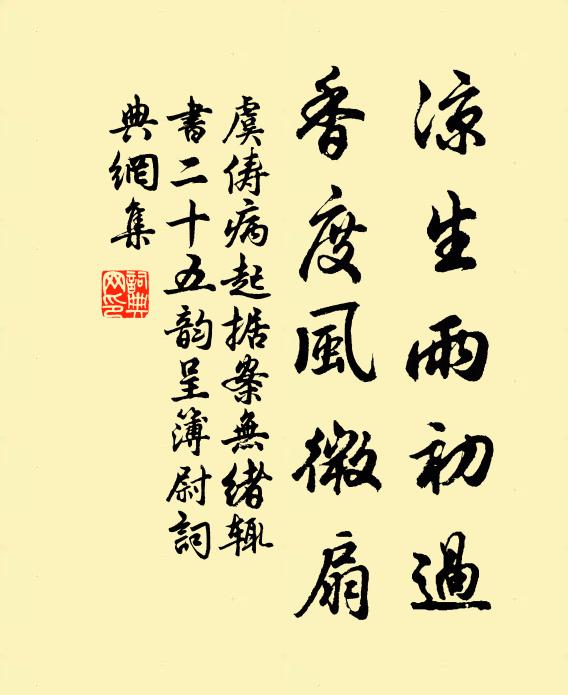 凉生雨初過
香度風微扇
虞俦病起据案無绪辄
書二十五韵呈簿尉詞
典網集
詞典
网印